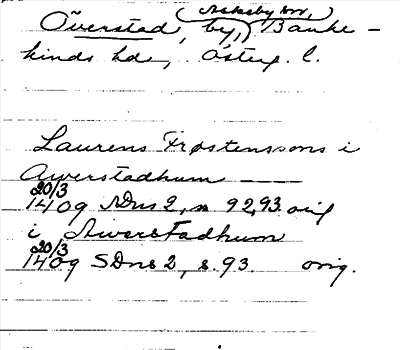 (Askeby sn,)
Överstad, by, Banke-
kinds hd, Österg. l.
Laurens Frøstenssons i
Awerstadhum ——
20/3
1409 SDns 2, s 92, 93 orig
i Awerstadhum
20/3
1409 SDns 2, s. 93. orig.